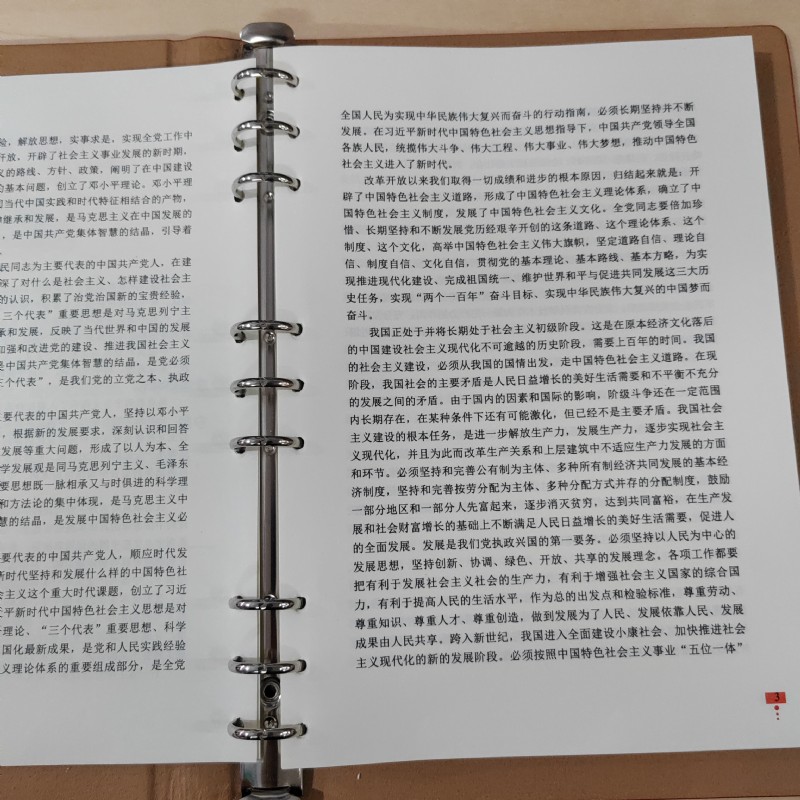 验，解放思想，实事求是，实现全党工作中
开放，开辟了社会主义事业发展的新时期，
义的路线、方针、政策，阐明了在中国建设
的基本问题，创立了邓小平理论。邓小平理
当代中国实践和时代特征相结合的产物，
继承和发展，是马克思主义在中国发展的
，是中国共产党集体智慧的结晶，引导着
民同志为主要代表的中国共产党人，在建
深了对什么是社会主义、怎样建设社会主
的认识，积累了治党治国新的宝贵经验，
三个代表”重要思想是对马克思列宁主
承和发展，反映了当代世界和中国的发展
加强和改进党的建设、推进我国社会主义
是中国共产党集体智慧的结晶，是党必须
三个代表”，是我们党的立党之本、执政
要代表的中国共产党人，坚持以邓小平
，根据新的发展要求，深刻认识和回答
发展等重大问题，形成了以人为本、全
学发展观是同马克思列宁主义、毛泽东
要思想既一脉相承又与时俱进的科学理
和方法论的集中体现，是马克思主义中
慧的结晶，是发展中国特色社会主义必
要代表的中国共产党人，顺应时代发
新时代坚持和发展什么样的中国特色社
会主义这个重大时代课题，创立了习近
近平新时代中国特色社会主义思想是对
理论、“三个代表”重要思想、科学
国化最新成果，是党和人民实践经验
义理论体系的重要组成部分，是全党
全国人民为实现中华民族伟大复兴而奋斗的行动指南，必须长期坚持并不断
发展。在习近平新时代中国特色社会主义思想指导下，中国共产党领导全国
各族人民，统揽伟大斗争、伟大工程、伟大事业、伟大梦想，推动中国特色
社会主义进入了新时代。
改革开放以来我们取得一切成绩和进步的根本原因，归结起来就是：开
辟了中国特色社会主义道路，形成了中国特色社会主义理论体系，确立了中
国特色社会主义制度，发展了中国特色社会主义文化。全党同志要倍加珍
惜、长期坚持和不断发展党历经艰辛开创的这条道路、这个理论体系、这个
制度、这个文化，高举中国特色社会主义伟大旗帜，坚定道路自信、理论自
信、制度自信、文化自信，贯彻党的基本理论、基本路线、基本方略，为实
现推进现代化建设、完成祖国统一、维护世界和平与促进共同发展这三大历
史任务，实现“两个一百年”奋斗目标、实现中华民族伟大复兴的中国梦而
奋斗。
我国正处于并将长期处于社会主义初级阶段。这是在原本经济文化落后
的中国建设社会主义现代化不可逾越的历史阶段，需要上百年的时间。我国
的社会主义建设，必须从我国的国情出发，走中国特色社会主义道路。在现
阶段，我国社会的主要矛盾是人民日益增长的美好生活需要和不平衡不充分
的发展之间的矛盾。由于国内的因素和国际的影响，阶级斗争还在一定范围
内长期存在，在某种条件下还有可能激化，但已经不是主要矛盾。我国社会
主义建设的根本任务，是进一步解放生产力，发展生产力，逐步实现社会主
义现代化，并且为此而改革生产关系和上层建筑中不适应生产力发展的方面
和环节。必须坚持和完善公有制为主体、多种所有制经济共同发展的基本经
济制度，坚持和完善按劳分配为主体、多种分配方式并存的分配制度，鼓励
一部分地区和一部分人先富起来，逐步消灭贫穷，达到共同富裕，在生产发
展和社会财富增长的基础上不断满足人民日益增长的美好生活需要，促进人
的全面发展。发展是我们党执政兴国的第一要务。必须坚持以人民为中心的
发展思想，坚持创新、协调、绿色、开放、共享的发展理念。各项工作都要
把有利于发展社会主义社会的生产力，有利于增强社会主义国家的综合国
力，有利于提高人民的生活水平，作为总的出发点和检验标准，尊重劳动、
尊重知识、尊重人才、尊重创造，做到发展为了人民、发展依靠人民、发展
成果由人民共享。跨入新世纪，我国进入全面建设小康社会、加快推进社会
主义现代化的新的发展阶段。必须按照中国特色社会主义事业“五位一体”
3